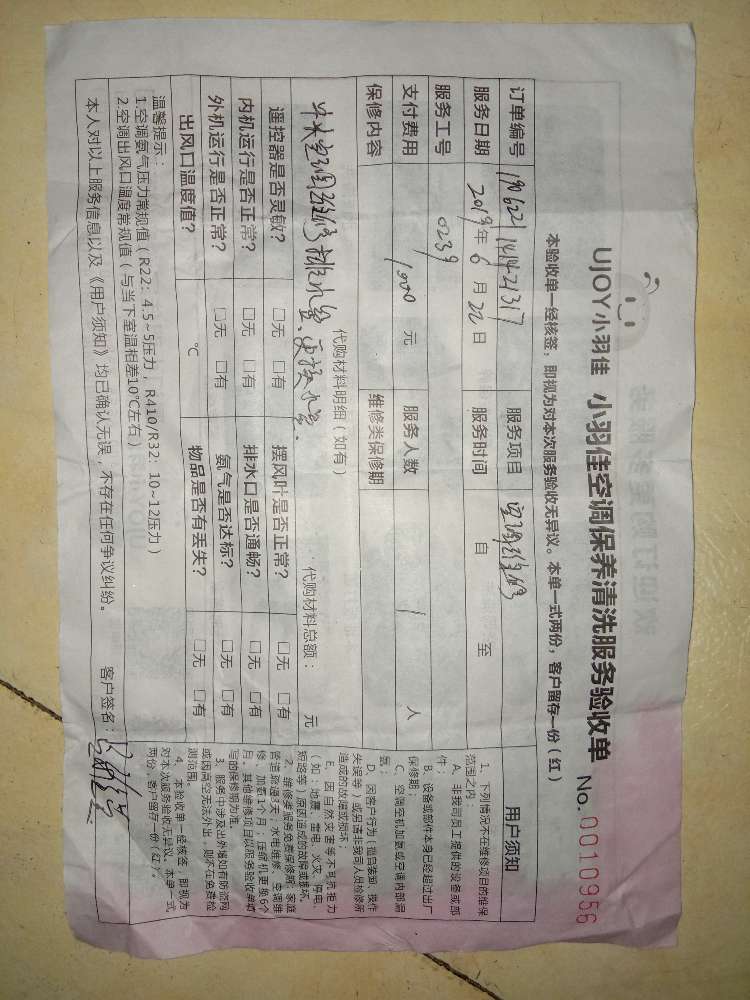 UJOY小羽佳 小羽佳空调保养清洗服务验收单 No.0010956
本验收单一经核签，即视为对本次服务验收无异议。本单一式两份，客户留存一份（红）
订单编号 服务项目 空调维修 用户须知
服务日期 2019年6月22日 服务时间 自 至
服务工号 0239
支付费用 元 服务人数 1 人
保修内容 维修类保修期
代购材料明细（如有） 代购材料总额： 元
遥控器是否灵敏？ □无 □有 摆风叶是否正常？ □无 □有
内机运行是否正常？ □无 □有 排水口是否通畅？ □无 □有
外机运行是否正常？ □无 □有 氨气是否达标？ □无 □有
出风口温度值？ ℃ 物品是否有丢失？ □无 □有
1、下列情况不在维修项目的维保
范围之内：
A、非我司员工提供的设备或部
件；
B、设备或部件本身已经超过出厂
保修期；
C、空调主机加氨或空调内部漏
氨；
D、因客户行为（擅自装卸、操作
失误等）或另请非我司人员检修所
造成的故障或损坏；
E、因自然灾害等不可抗拒力
（如：地震、雷电、火灾、停电、
短路等）原因造成的故障或损坏。
2、维修类服务免费保修期：家庭
管道疏通3天；水电维修、空调维
修、加氨1个月；压缩机更换6个
月。其他维修项目以服务验收单填
写的保修期为准。
3、服务中涉及出外墙如有防盗网
或因高空无法外出，则不在免费检
测范围。
4、本验收单一经核签，即视为
对本次服务验收无异议。本单一式
两份，客户留存一份（红）。
温馨提示：
1.空调氨气压力常规值（R22：4.5~5压力，R410/R32：10~12压力）
2.空调出风口温度常规值（与当下室温相差10℃左右）
本人对以上服务信息以及《用户须知》均已确认无误，不存在任何争议纠纷。 客户签名：